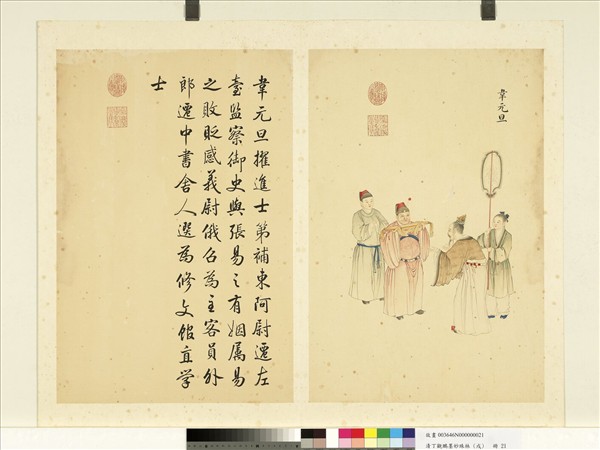 韋元旦擢進士第補東阿尉遷左
臺監察御史與張易之有姻屬易
之敗貶感義尉俄召為主客員外
郎遷中書舍人選為修文館直學
士
韋元旦
故畫 003646N000000021
清丁觀鵬墨妙珠林（戌） 冊 21